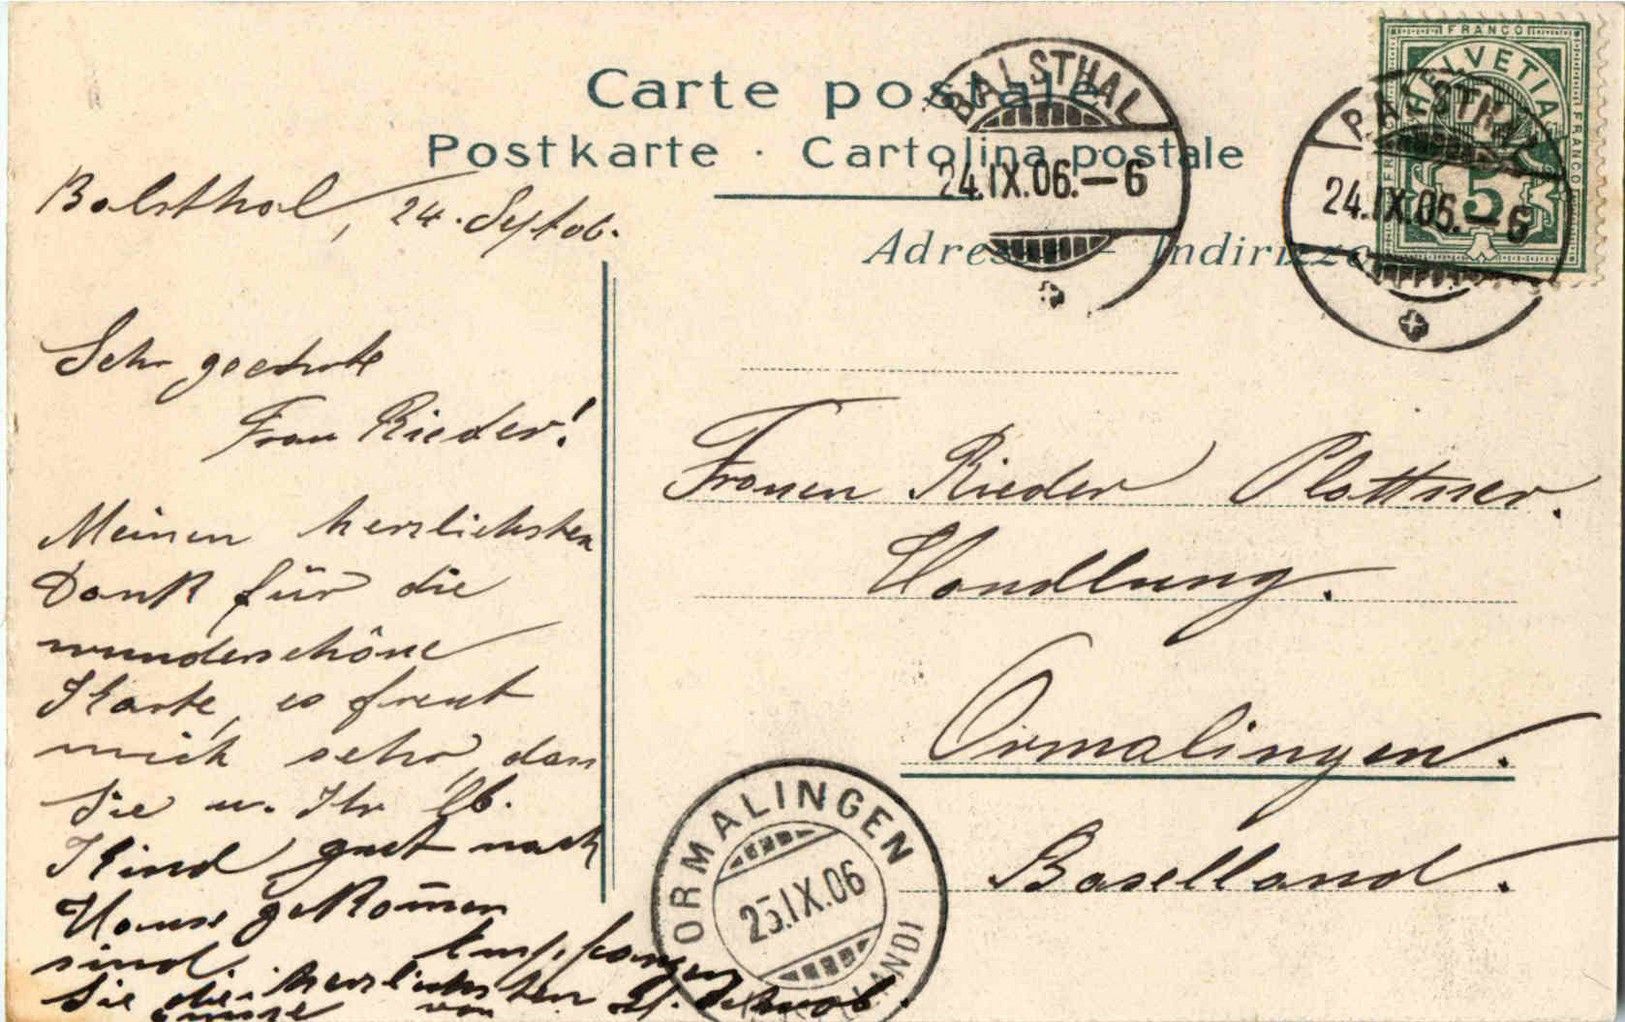 Carte postale
Postkarte · Cartolina postale
Adresse - Indirizzo
BALSTHAL
24.IX.06.–6
BALSTHAL
24.IX.06.–6
FRANCO
HELVETIA
FRANCO
FRANCO
5
Balsthal, 24. Sept 06.
Sehr geehrte
Frau Rieder!
Meinen herzlichsten
Dank für die
wunderschöne
Karte, es freut
mich sehr, dass
Sie u. Ihr lb.
Kind gut nach
Hause gekom̄en
sind. Empfangen
Sie die herzlichsten
Grüsse von
Frauen Rieder Plattner.
Handlung.
Ormalingen.
Baselland.
ORMALINGEN
25.IX.06